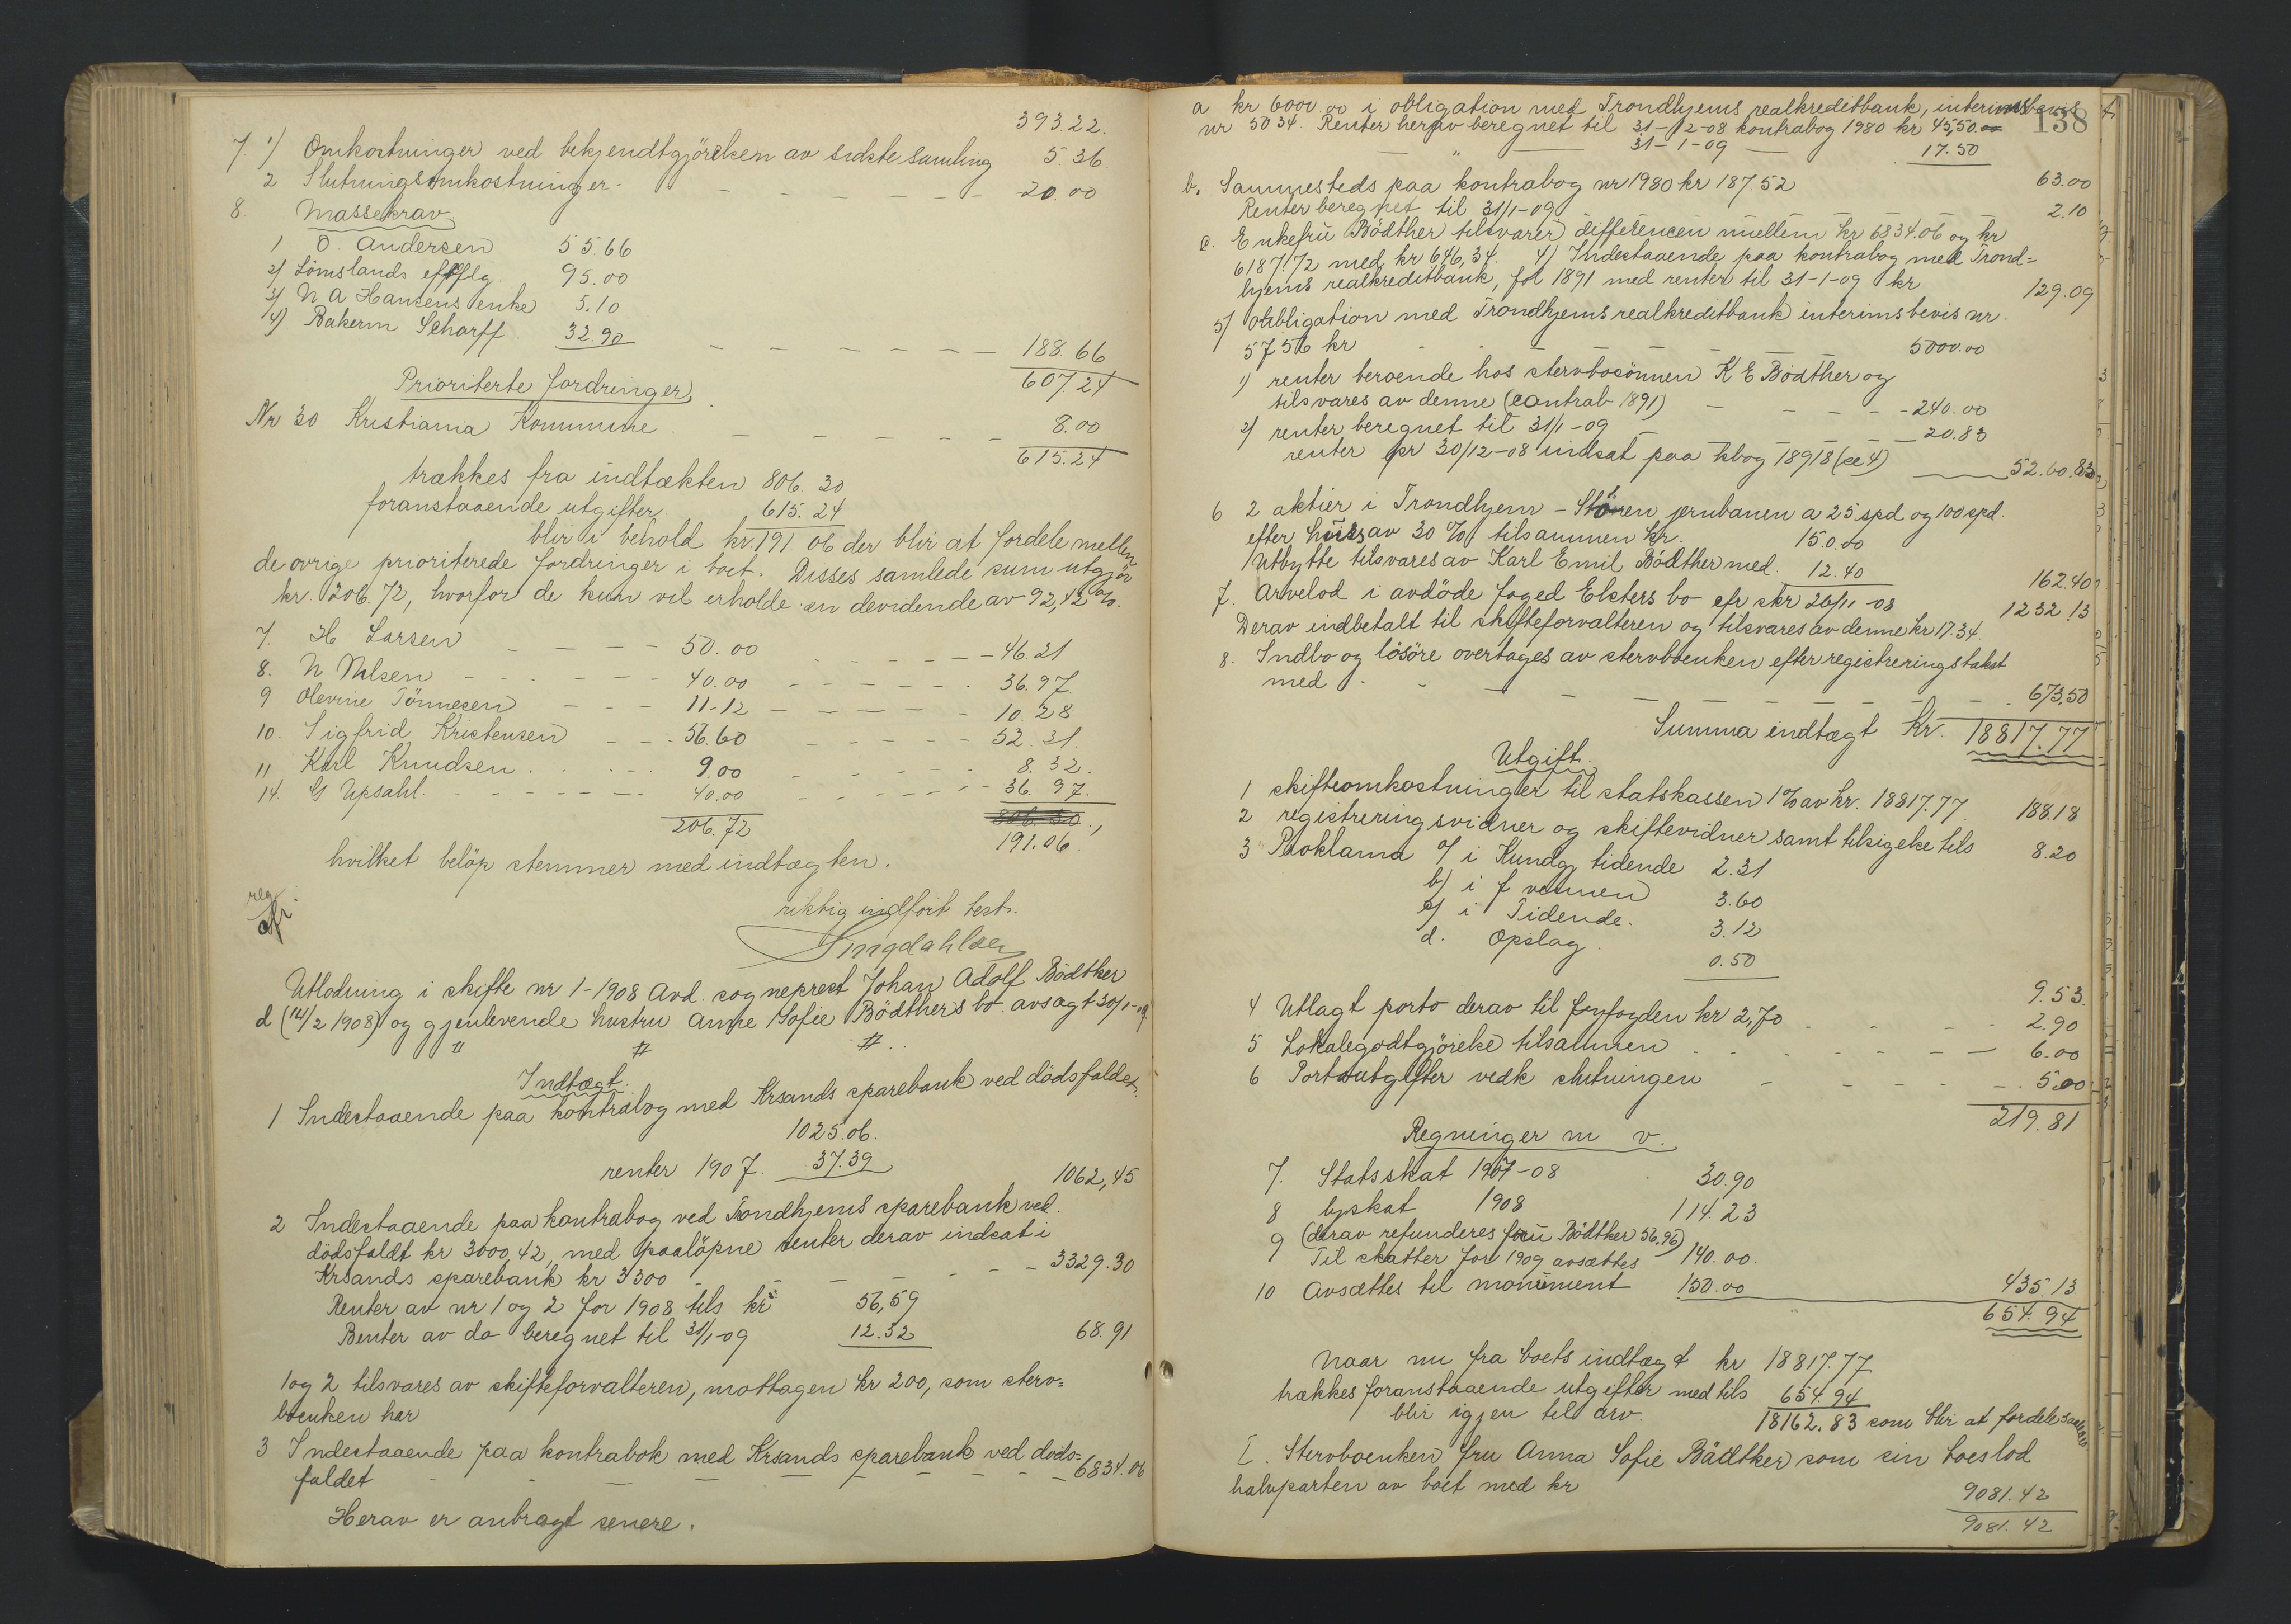 393.22.
7. 1) Omkostninger ved bekjendtgjörelsen av sidste samling 5.36
2 Slutningsomkostninger. - - - - - 20.00
8. Massekrav
1 O. Andersen 55.66
2) Lömslands efflg. 95.00
3) N A Hansens enke 5.10
4) Bakerm Scharff. 32.90 - - - - - - 188.66
607 24
Prioriterte fordringer.
Nr 30 Kristiania Kommune. - - - - - - 8.00
615.24
trækkes fra indtækten 806.30
foranstaaende utgifter. 615.24
blir i behold kr. 191.06 der blir at fordele mellem
de ovrige prioriterede fordringer i boet. Disses samlede sum utgjör
kr. 206.72, hvorfor de kun vil erholde en devidende av 92,42 %.
7. H Larsen - - - - 50.00 - - - - - 46.21
8. N Nilsen - - - - - 40.00 - - - - - 36.97.
9 Olevine Tönnesen - - - 11-12 - - - - - 10.28
10. Sigfrid Kristensen - - - 56.60 - - - - - 52.31.
11 Karl Knudsen. - - - - 9.00 - - - - - 8.32.
14. G Upsahl. - - - - - - 40.00 - - - - - 36.97.
206.72 806.30.
191.06.
hvilket belöp stemmer med indtægten.
reg
riktig indfort test.
Singdahlsen
Utlodning i skifte nr 1-1908 Avd. sogneprest Johan Adolf Bödtker
d (12/2 1908) og gjenlevende hustru Anne Sofie Bödthers bo. avsagt 30/1-09
" # #.
Indtægt.
1 Indestaaende paa kontrabog med Krsands sparebank ved dödsfaldet.
1025.06.
renter 1907. 37.39 1062,45
2 Indestaaende paa kontrabog ved Trondhjems sparebank ved.
dödsfaldt kr 3000,42, med paalöpne renter derav indsat i
Krsands sparebank kr 3300 - - - - - 3329.30
Renter av nr 1 og 2 for 1908 tils kr 56,59
Renter av do beregnet til 31/1-09 12.32 68.91
1 og 2 tilsvares av skifteforvalteren, mottagen kr 200, som sterv=
boenken har
3 Indestaaende paa kontrabok med Krsands sparebank ved döds-
faldet - - - - - - 6834.06
Herav er anbragt senere.
138
a kr 6000.00 i obligation med Trondhjems realkreditbank, interimsbevis
nr 5034. Renter herav beregnet til 31-12-08 kontrabog 1980 kr 45,50.
— " — 31-1-09 — 17.50
63.00
b. Sammesteds paa kontrabog nr 1980 kr 187.52
Renter beregnet til 31/1-09 2.10
c. Enkefru Bödther tilsvarer differencen mellem kr 6834.06 og kr
6187.72 med kr 646,34. 4) Indestaaende paa kontrabog med Trond=
hjems realkreditbank, fol 1891 med renter til 31-1-09 kr 129.09
5) Obbligation med Trondhjems realkreditbank interimsbevis nr.
5756 kr - - - - - - 5000.00
1) renter beroende hos stervbosönnen K E Bödther og
tilsvares av denne (contrab 1891) - - - - 240.00
2) renter beregnet til 31/1-09 - - - - 20.83
renter pr 30/12-08 indsat paa kbog 1891 8 (se 4) — 52.60.83
6 2 aktier i Trondhjem - Stören jernbanen a 25 spd og 100 spd.
efter kurs av 30 % tilsammen kr. 150.00
Utbytte tilsvares av Karl Emil Bödther med. 12.40 162.40
7. Arvelod i avdöde foged Elsters bo efr skr 26/11-08 1232.13
Derav indbetalt til skifteforvalteren og tilsvares av denne kr 17.34.
8. Indbo og lösöre overtages av stervboenken efter registreringstakst
med - - - - - - 673,50
Summa indtægt Kr. 18817.77
Utgift.
1 skifteomkostninger til statskassen 1 % av kr. 18817.77. 188.18
2 registreringsvidner og skiftevidner samt tilsigelse tils 8.20
3 Proklama a/ i Kundgj tidende 2.31
b) i f vennen 3.60
c) i Tidende. 3.12
d. Opslag. 0.50
9.53.
4 Utlagt porto derav til byfogden kr 2,70 - - - - 2.90
5 Lokalegodtgjörelse tilsammen - - - - - - 6.00
6 Portoutgifter vedk slutningen - - - - - 5.00
219.81
Regninger m v.
7. Statsskat 1907-08 30.90
8 byskat 1908 114.23
9 (derav refunderes fru Bödtker 56.96)
Til skatter for 1909 avsættes 140.00.
10 Avsættes til monument 150.00 435.13
654.94
Naar nu fra boets indtægt kr 18817.77
trækkes foranstaaende utgifter med tils 654.94
blir igjen til arv. 18162.83 som blir at fordele saaledes
I. Stervboenken fru Anna Sofie Bödtker som sin boeslod
halvparten av boet med kr 9081.42
9081.42